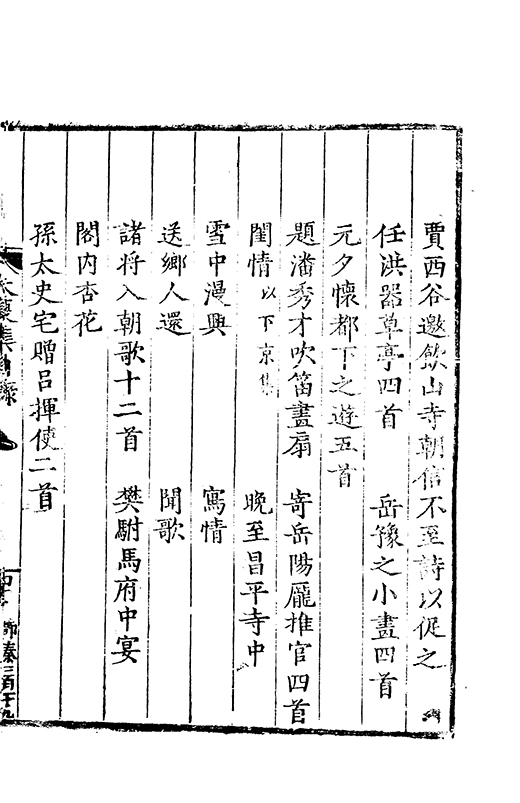 賈西谷邀飲山寺朝信不至詩以促之
任洪器草亭四首 岳豫之小畫四首
元夕懷都下之遊五首
題潘秀才吹笛畫扇 寄岳陽龐推官四首
閨情以下京集 晚至昌平寺中
雪中漫興 寫情
送鄉人還 聞歌
諸将入朝歌十二首 樊駙馬府中宴
閣内杏花
孫太史宅贈呂揮使二首